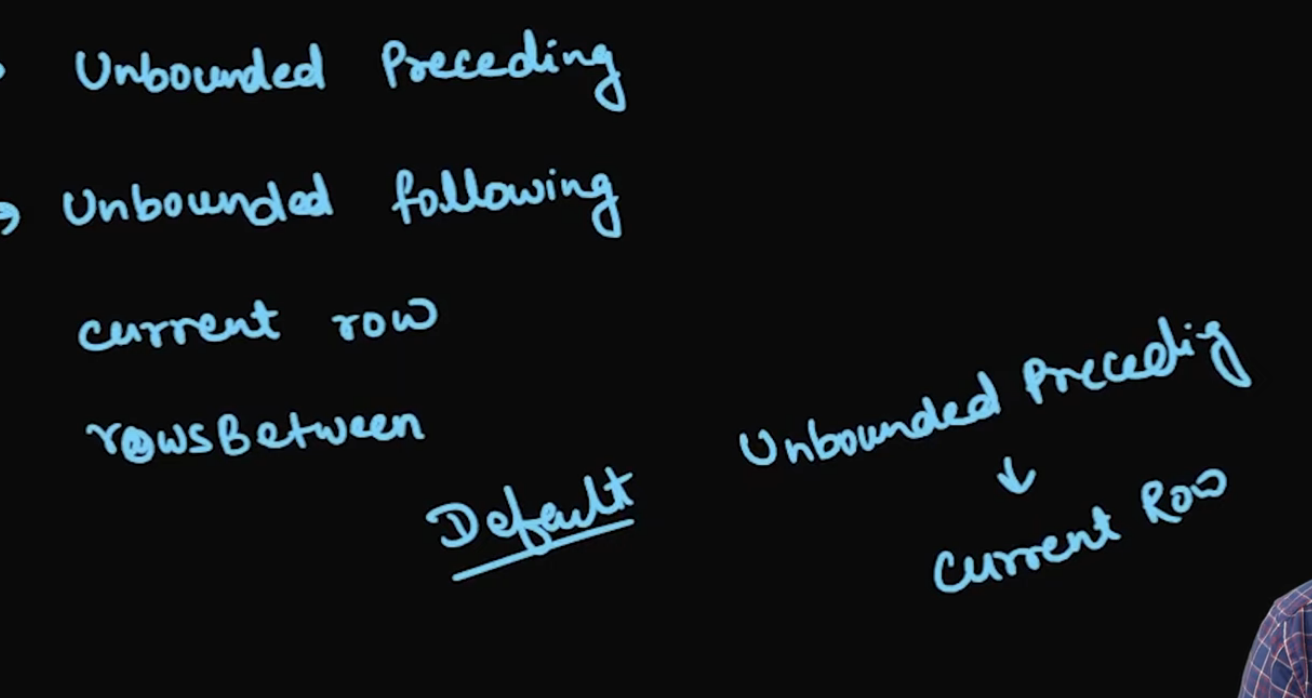 Unbounded Preceding
Unbounded following
current row
rowsBetween
Default
Unbounded Precedig
↓
Current Row